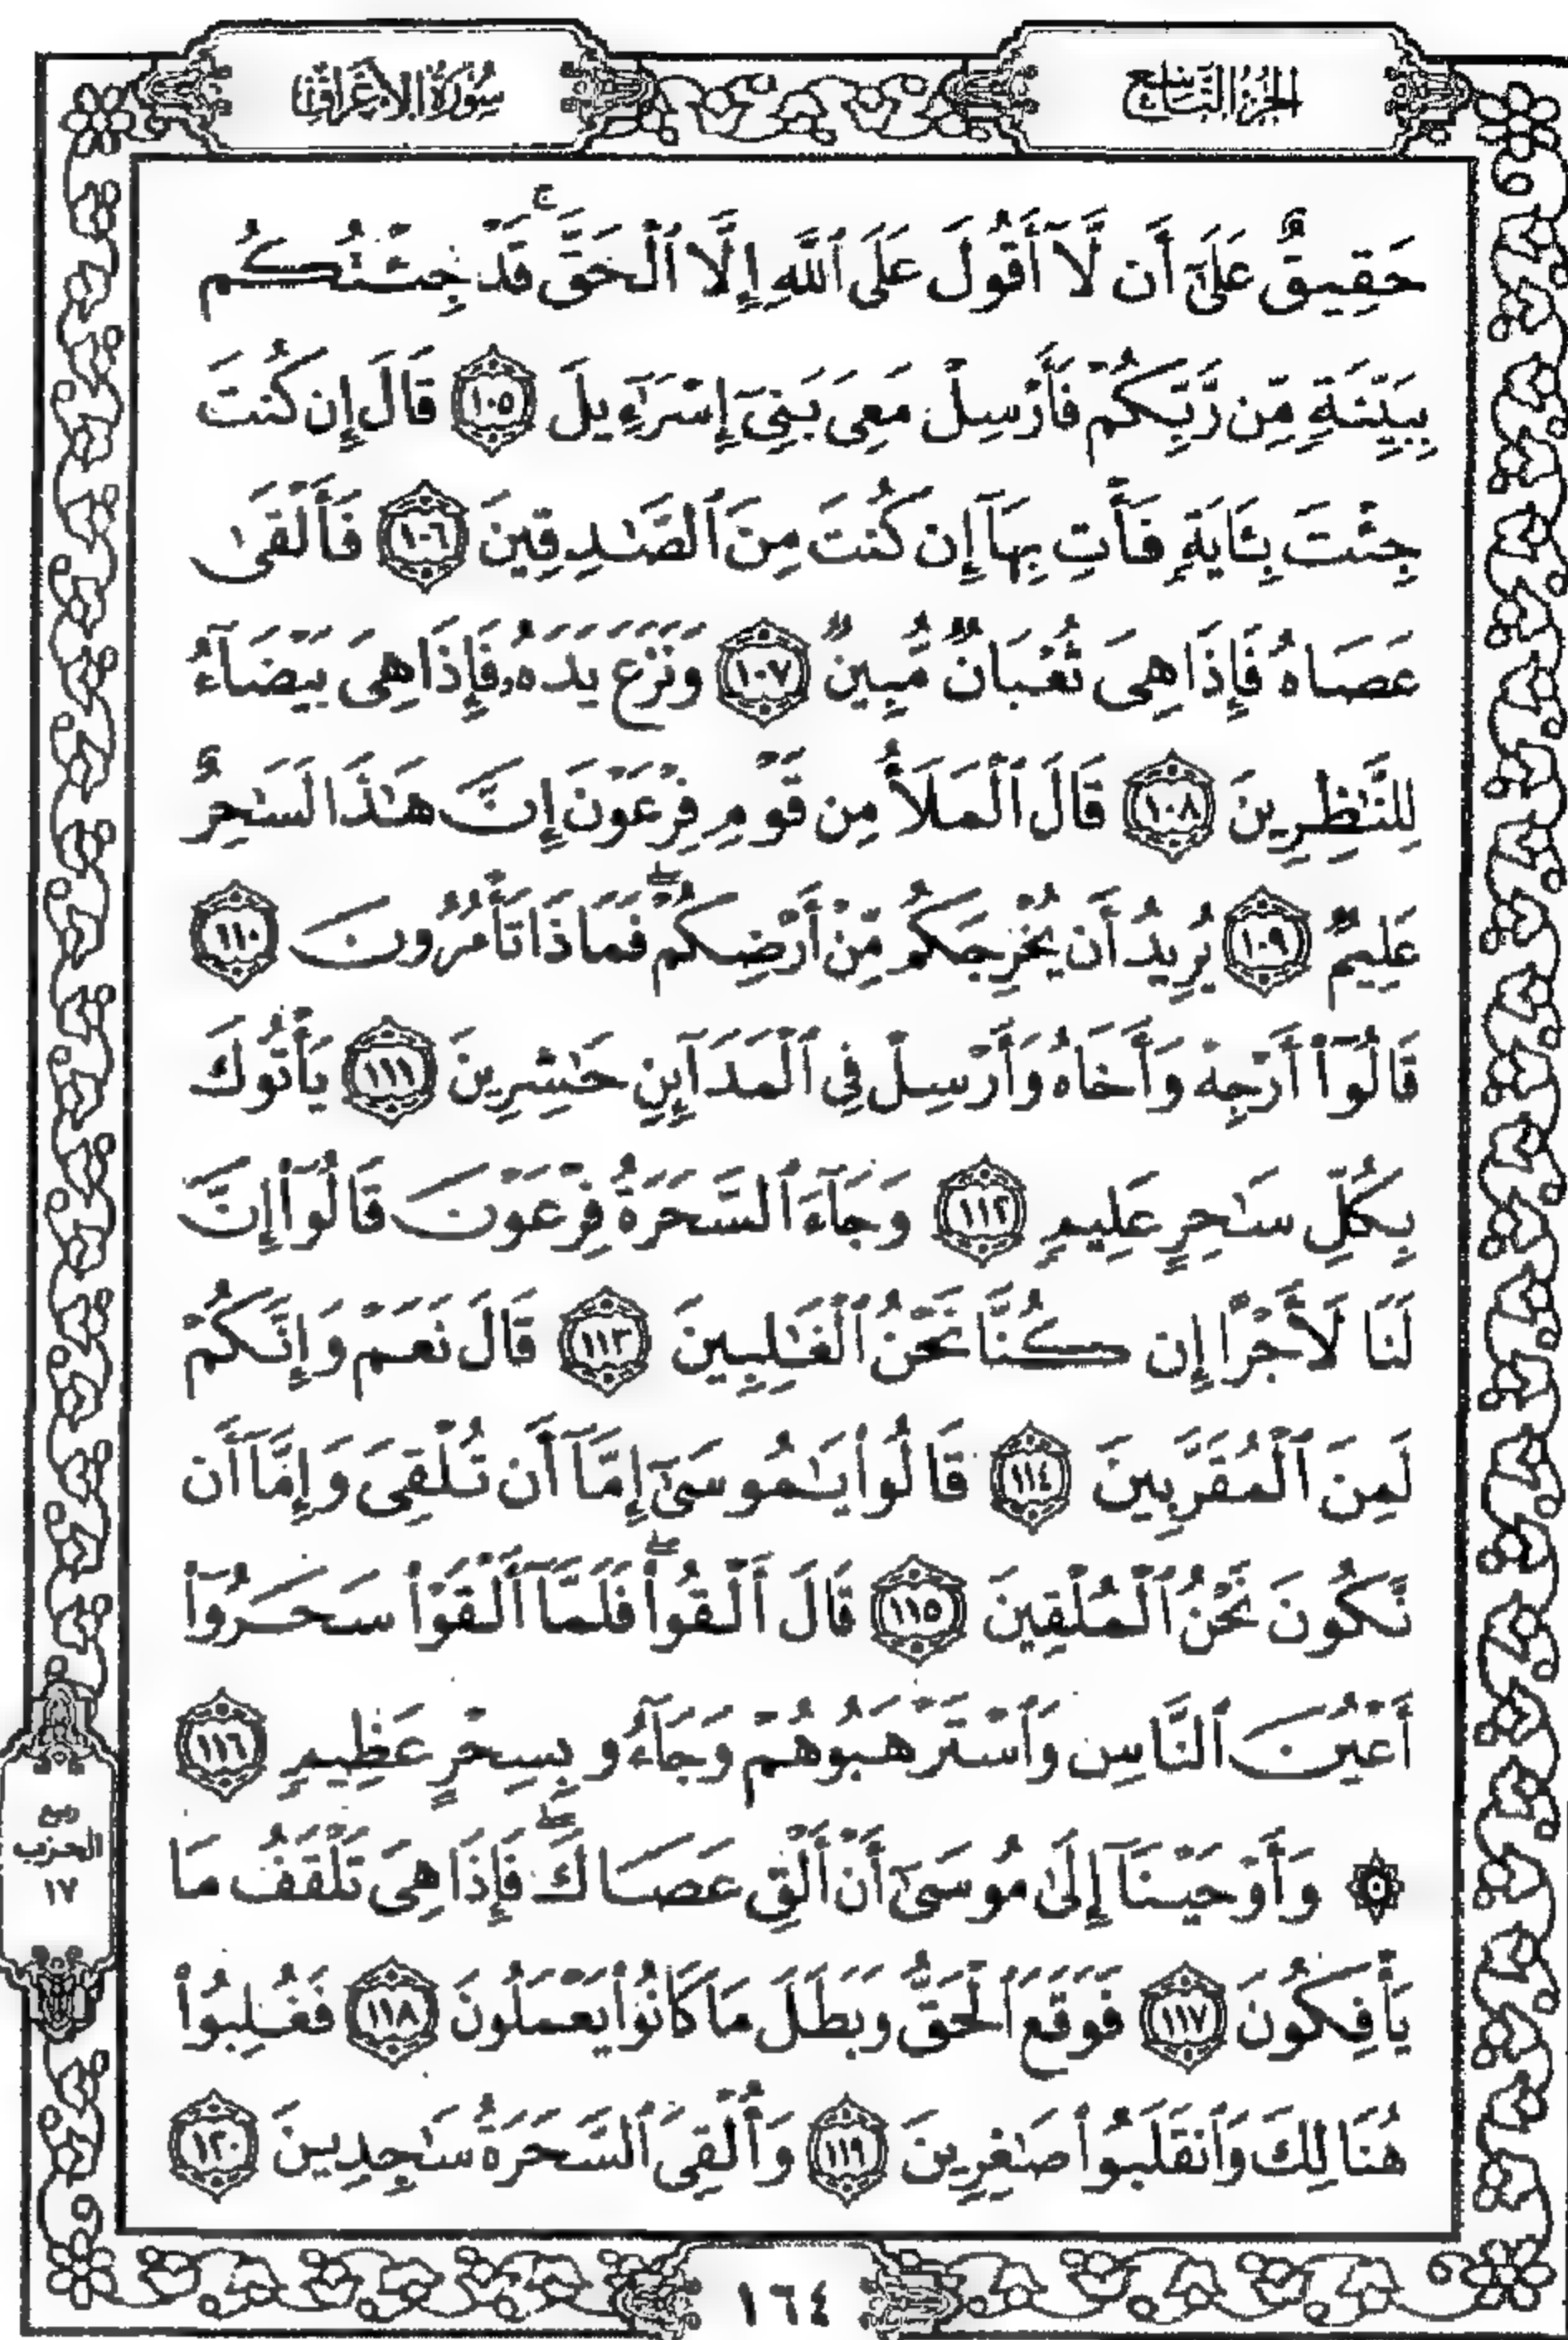 الجزء التاسع
سورة الأعراف
حَقِيقٌ عَلَىٰٓ أَن لَّآ أَقُولَ عَلَى ٱللَّهِ إِلَّا ٱلْحَقَّ ۚ قَدْ جِئْتُكُم
بِبَيِّنَةٍ مِّن رَّبِّكُمْ فَأَرْسِلْ مَعِىَ بَنِىٓ إِسْرَٰٓءِيلَ ١٠٥ قَالَ إِن كُنتَ
جِئْتَ بِـَٔايَةٍ فَأْتِ بِهَآ إِن كُنتَ مِنَ ٱلصَّٰدِقِينَ ١٠٦ فَأَلْقَىٰ
عَصَاهُ فَإِذَا هِىَ ثُعْبَانٌ مُّبِينٌ ١٠٧ وَنَزَعَ يَدَهُۥ فَإِذَا هِىَ بَيْضَآءُ
لِلنَّٰظِرِينَ ١٠٨ قَالَ ٱلْمَلَأُ مِن قَوْمِ فِرْعَوْنَ إِنَّ هَٰذَا لَسَٰحِرٌ
عَلِيمٌ ١٠٩ يُرِيدُ أَن يُخْرِجَكُم مِّنْ أَرْضِكُمْ ۖ فَمَاذَا تَأْمُرُونَ ١١٠
قَالُوٓا۟ أَرْجِهْ وَأَخَاهُ وَأَرْسِلْ فِى ٱلْمَدَآئِنِ حَٰشِرِينَ ١١١ يَأْتُوكَ
بِكُلِّ سَٰحِرٍ عَلِيمٍ ١١٢ وَجَآءَ ٱلسَّحَرَةُ فِرْعَوْنَ قَالُوٓا۟ إِنَّ
لَنَا لَأَجْرًا إِن كُنَّا نَحْنُ ٱلْغَٰلِبِينَ ١١٣ قَالَ نَعَمْ وَإِنَّكُمْ
لَمِنَ ٱلْمُقَرَّبِينَ ١١٤ قَالُوا۟ يَٰمُوسَىٰٓ إِمَّآ أَن تُلْقِىَ وَإِمَّآ أَن
نَّكُونَ نَحْنُ ٱلْمُلْقِينَ ١١٥ قَالَ أَلْقُوا۟ ۖ فَلَمَّآ أَلْقَوْا۟ سَحَرُوٓا۟
أَعْيُنَ ٱلنَّاسِ وَٱسْتَرْهَبُوهُمْ وَجَآءُو بِسِحْرٍ عَظِيمٍ ١١٦
۞ وَأَوْحَيْنَآ إِلَىٰ مُوسَىٰٓ أَنْ أَلْقِ عَصَاكَ ۖ فَإِذَا هِىَ تَلْقَفُ مَا
يَأْفِكُونَ ١١٧ فَوَقَعَ ٱلْحَقُّ وَبَطَلَ مَا كَانُوا۟ يَعْمَلُونَ ١١٨ فَغُلِبُوا۟
هُنَالِكَ وَٱنقَلَبُوا۟ صَٰغِرِينَ ١١٩ وَأُلْقِىَ ٱلسَّحَرَةُ سَٰجِدِينَ ١٢٠
ربع
الحزب
١٧
١٦٤